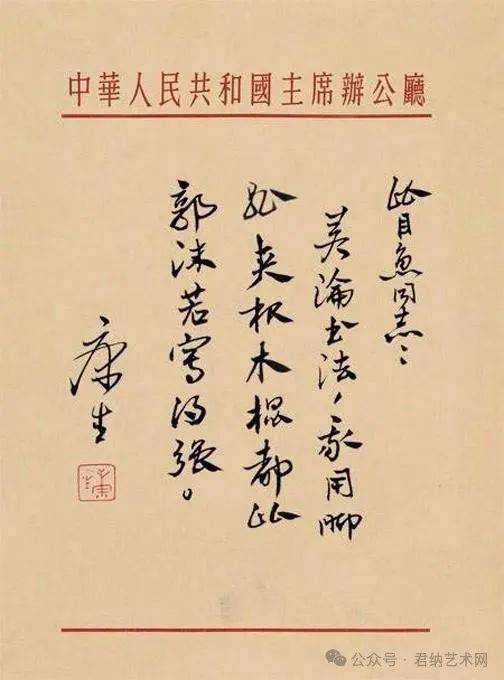 中華人民共和國主席辦公廳
比目魚同志：
若論书法，我用脚
趾夹根木棍都比
郭沫若寫得强。
康生
公众号 · 君纳艺术网